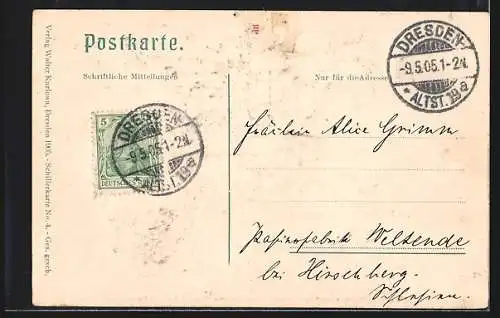 Postkarte.
Schriftliche Mitteilungen
Nur für die Adresse
Verlag Walter Dresden 1905. - Schillerkarte No. 4. - Ges. gesch.
5
DEUTSCHES
DRESDEN
-9.5.05.1-2N.
ALTST. 19a
DRESDEN
-9.5.05.1-2N.
* ALTST. 19a
Fräulein Alice Grimm
Papierfabrik Weltende
bei Hirschberg.
Schlesien.